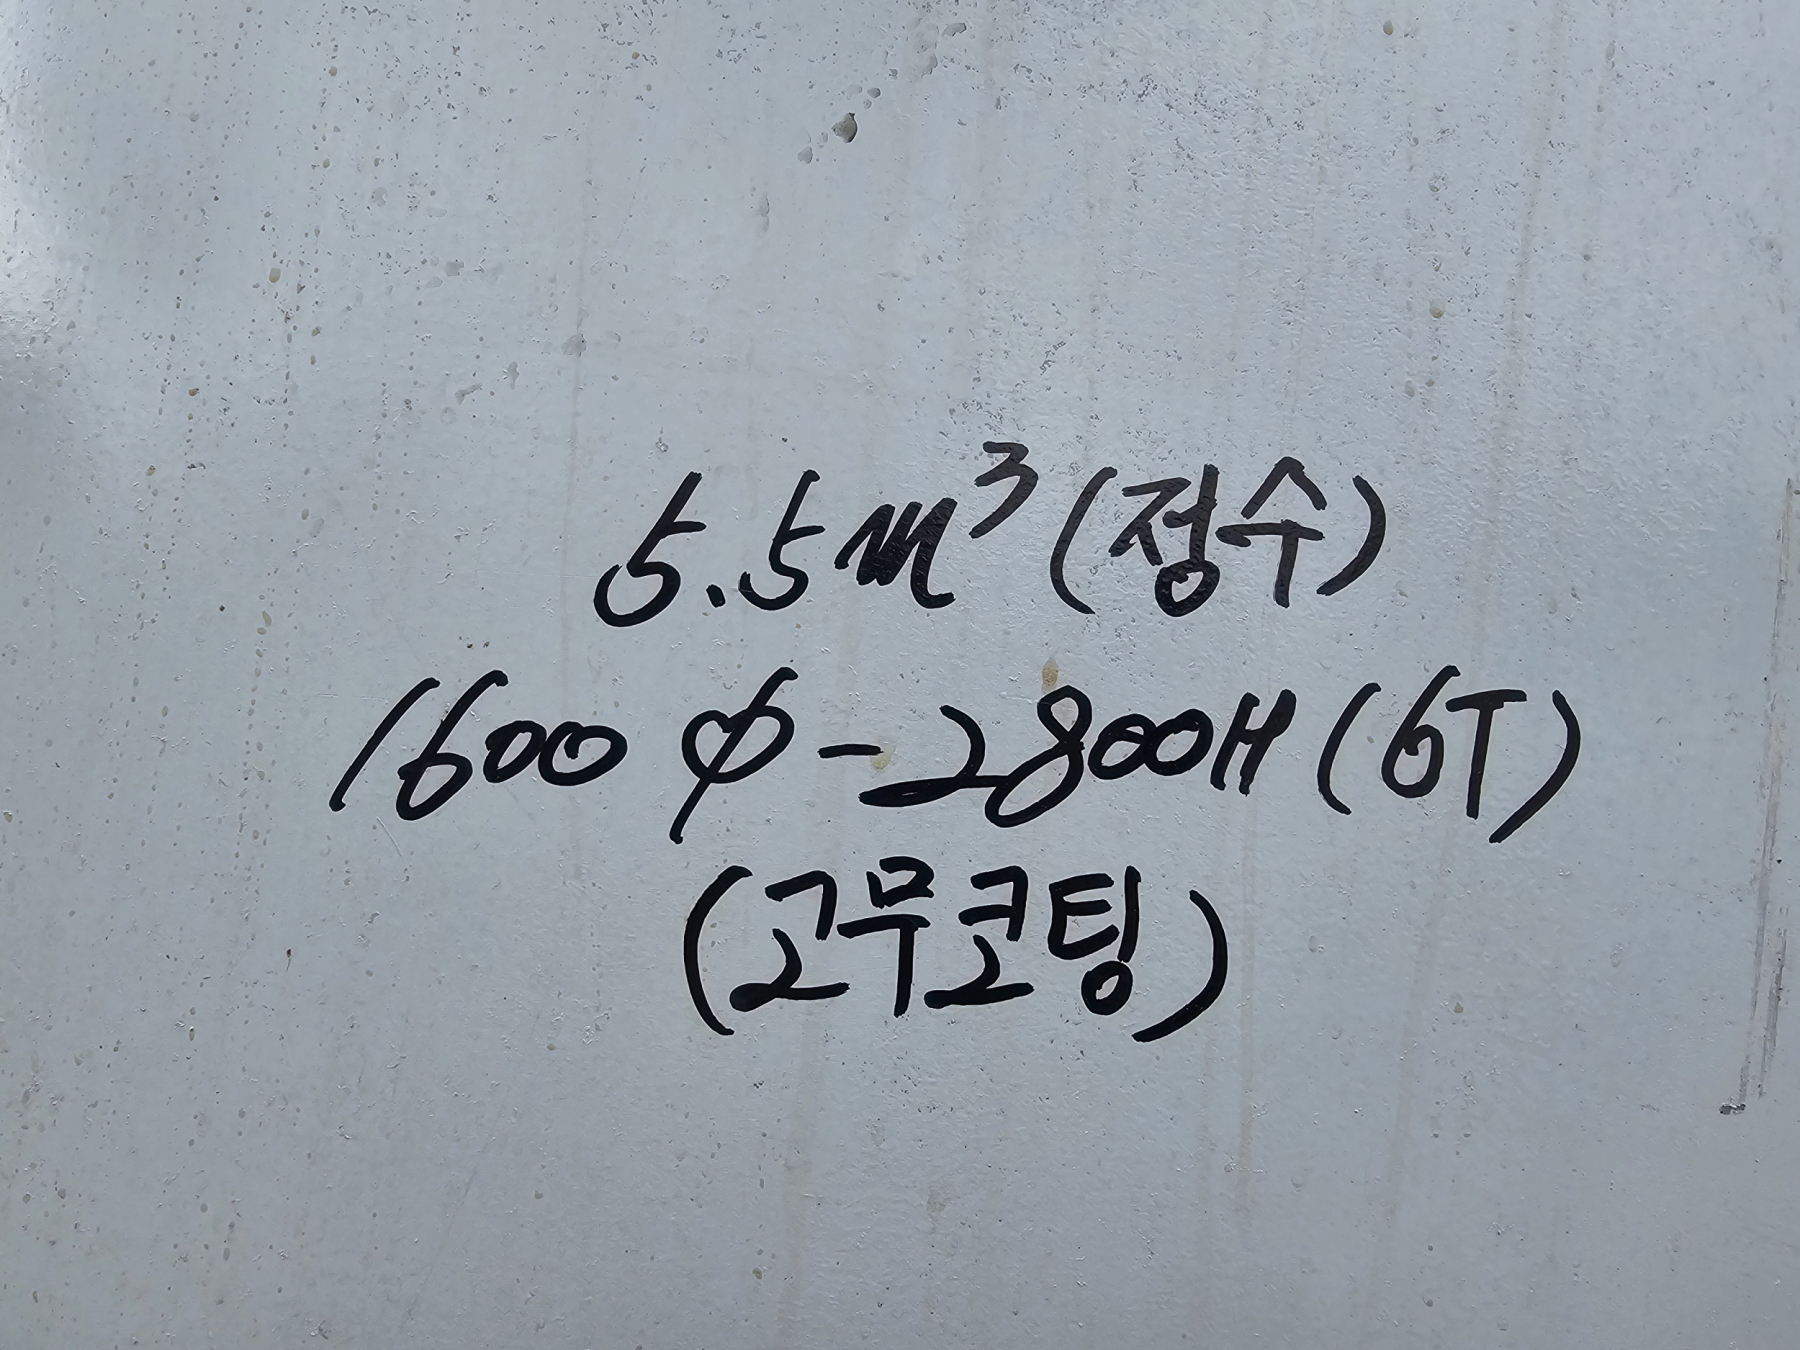 5.5m³(정수)
1600 φ-2800H(6T)
(고무코팅)